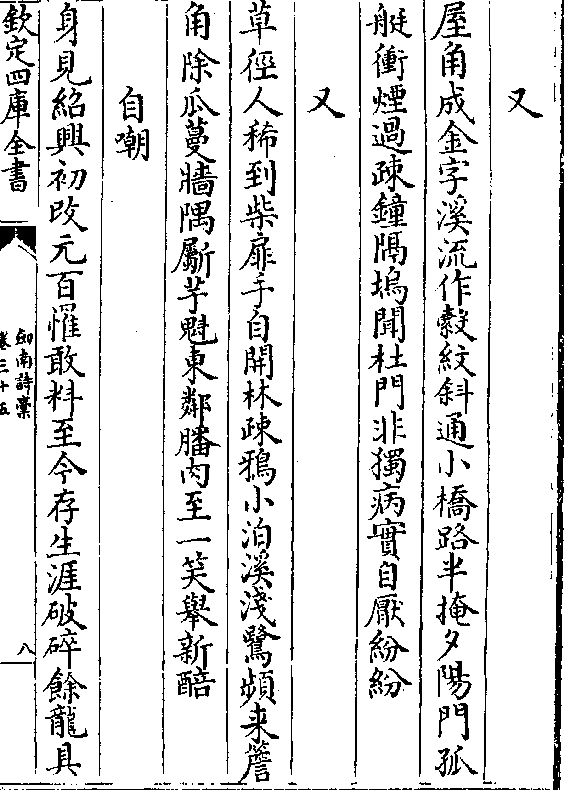 又
屋角成金字溪流作縠紋斜通小橋路半掩夕陽門孤
艇衝煙過疎鐘隔塢聞杜門非獨病實自厭紛紛
又
草徑人稀到柴扉手自開林疎鴉小泊溪淺鷺頻来簷
角除瓜蔓牆隅斸芋魁東鄰膰肉至一笑舉新醅
自嘲
身見紹興初改元百罹敢料至今存生涯破碎餘龍具
欽定四庫全書
劔南詩稾
卷三十五
八